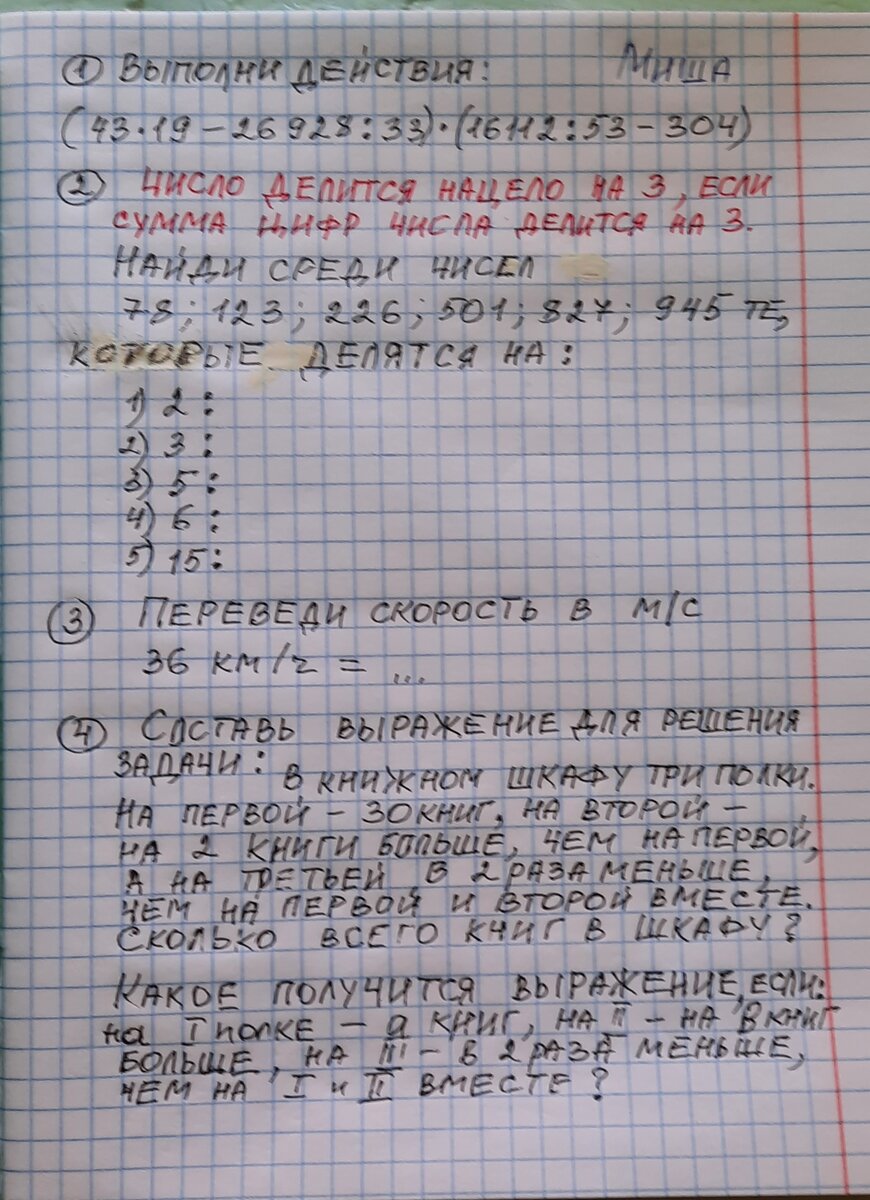 ① Выполни действия: Миша
(43·19 – 26 928 : 33)·(16112 : 53 – 304)
② Число делится нацело на 3, если
сумма цифр числа делится на 3.
Найди среди чисел
78; 123; 226; 501; 827; 945 те,
которые делятся на:
1) 2:
2) 3:
3) 5:
4) 6:
5) 15:
③ Переведи скорость в м/с
36 км/ч = ...
④ Составь выражение для решения
задачи: В книжном шкафу три полки.
На первой – 30 книг, на второй –
на 2 книги больше, чем на первой,
а на третьей в 2 раза меньше,
чем на первой и второй вместе.
Сколько всего книг в шкафу?
Какое получится выражение, если:
на I полке – a книг, на II – на в книг
больше, на III – в 2 раза меньше,
чем на I и II вместе?